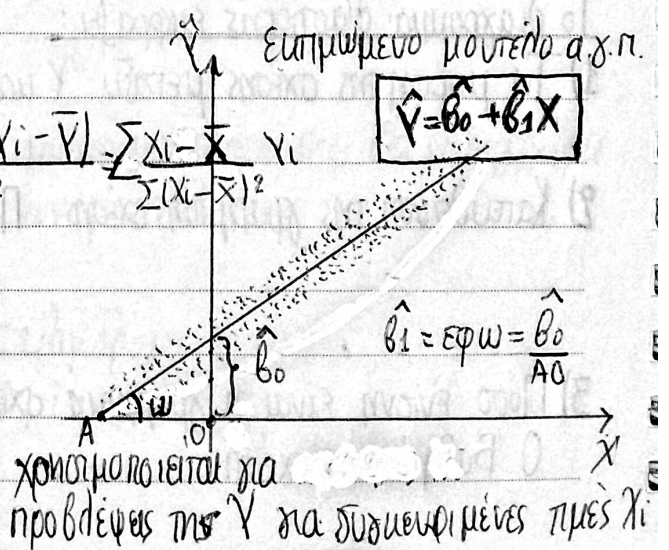 Εκτιμώμενο μοντέλο α.γ.π.
Ŷ
Ŷ = β̂0 + β̂1X
Yi - Ȳ) = Σ Xi - X̄ / Σ(Xi - X̄)² Yi
β̂1 = εφω = β̂0 / AO
β̂0
ω
A
O
X
χρησιμοποιείται για
προβλέψεις της Y για συγκεκριμένες τιμές Xi